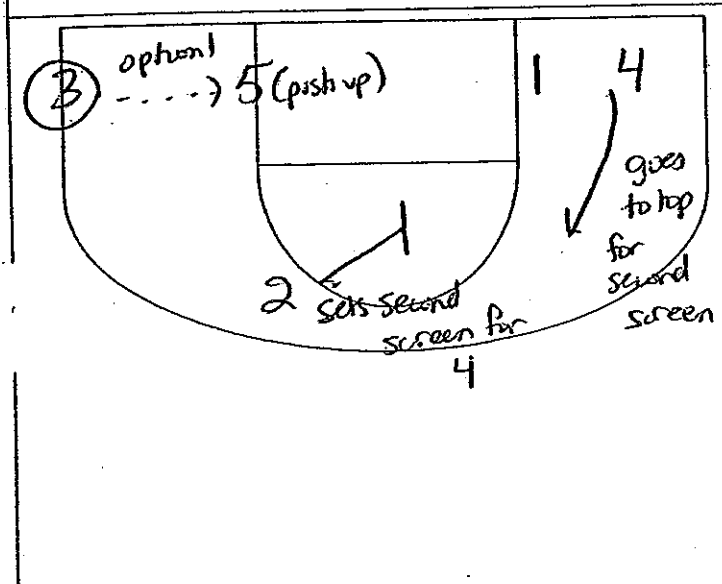 3 option1 5 (pick up) 1 4
goes
to top
for
second
screen
2 sets second
screen for
4